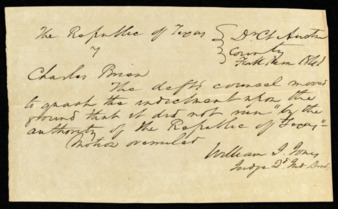 The Republic of Texas
Dist Ct Austin
County
Fall Term 1841
Charles
The defts counsel moved
to quash the indictment upon the
ground that it did not run "by the
authority of the Republic of Texas"
Motion overruled
William J. Jones
Judge 2d Jud